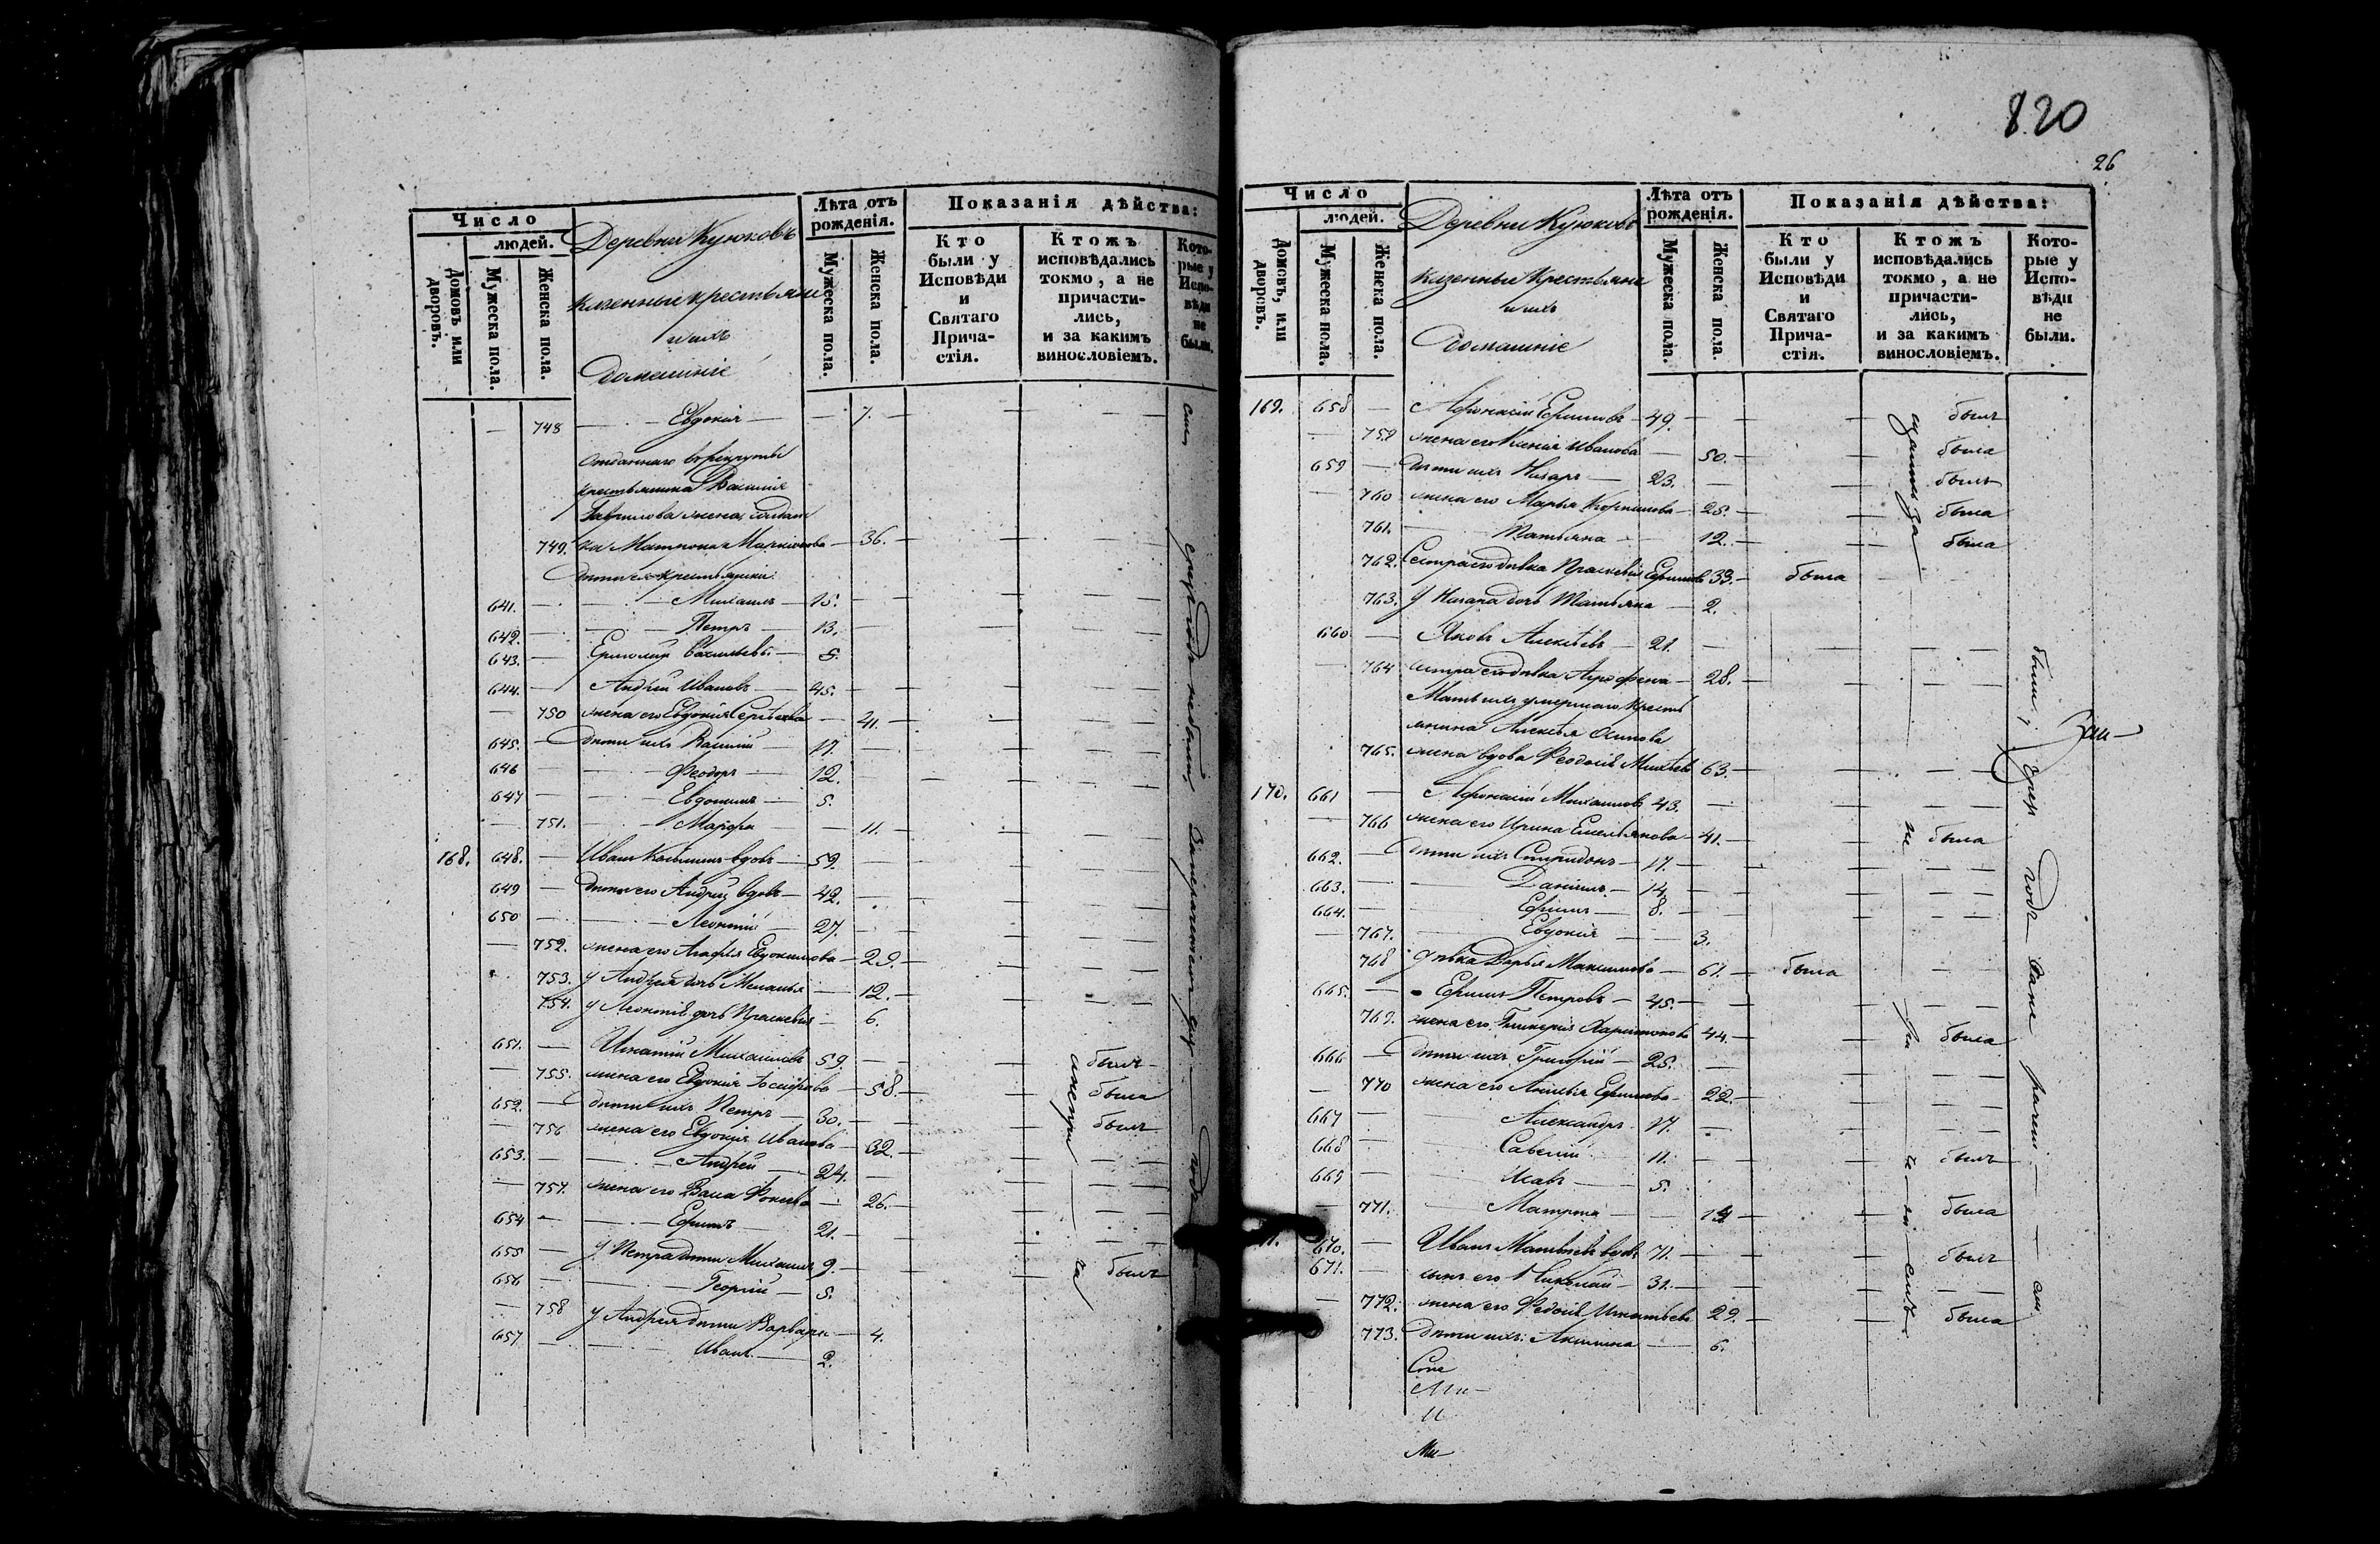 820
26
Число
людей.
Домовъ или дворовъ.
Мужеска пола.
Женска пола.
Деревни Куюковъ
казенные крестьяне
и ихъ
домашніе
Лѣта отъ рожденія.
Мужеска пола.
Женска пола.
Показанія дѣйства:
Кто были у Исповѣди и Святаго Причастія.
Ктожъ исповѣдались токмо, а не причастились, и за какимъ винословіемъ.
Которые у Исповѣди не были.
748 — Евдокія — 7.
отданнаго в рекруты
крестьянина Василія
Гаврилова жена, солдат
749. ка Матрона — 36.
дѣти ея крестьянскіе:
641. — Михаилъ — 15.
642. — Петръ — 13.
643. — Ермолай Васильевъ — 5.
644. — Андрей Ивановъ — 45.
750 жена его Евдокія Сергѣева — 41.
645. — дѣти ихъ Василій — 17.
646 — Феодоръ — 12.
647 — Евдокимъ — 5.
751. — Марфа — 11.
168. 648. — Иванъ вдовъ — 59.
649 — дѣти его Андрей вдовъ — 42.
650 — Леонтій — 27.
752. жена его Агафія Евдокимова — 29.
753. у Андрея дочь Меланья — 12.
754. у Леонтія дочь Праскевія — 6.
651. — Игнатій Михайловъ 59. — былъ
755. жена его Евдокія — 58. — была
652. — дѣти ихъ Петръ — 30. — былъ
756 жена его Евдокія Иванова — 32.
653. — Андрей — 24.
757. жена его — 26.
654 — Ефимъ — 21.
655 — у Петра дѣти Михаилъ 9. — былъ
656 — Георгій — 5.
758 у Андрея дѣти Варвара — 4.
657 — Иванъ — 2.
Число
людей.
Домовъ, или дворовъ.
Мужеска пола.
Женска пола.
Деревни Куюковъ
казенные крестьяне
и ихъ
домашніе
Лѣта отъ рожденія.
Мужеска пола.
Женска пола.
Показанія дѣйства:
Кто были у Исповѣди и Святаго Причастія.
Ктожъ исповѣдались токмо, а не причастились, и за какимъ винословіемъ.
Которые у Исповѣди не были.
169. 658 — Афонасій Ефимовъ — 49. — былъ
759 жена его Ксенія Иванова — 50. — была
659 — дѣти ихъ Назаръ — 23. — былъ
760 жена его Марья Корнилова — 25. — была
761. Татьяна — 12. — была
762. Сестра его дѣвка Праскевія Ефимова 33. — была
763. у Назара дочь Татьяна — 2.
660 — Яковъ Алексѣевъ — 21.
764 сестра его дѣвка Агрофена — 28.
Мать ихъ умершаго кресть
янина Алексѣя Осипова
765. жена вдова Феодосія 63.
170. 661 — Афонасій Михайловъ 43.
766 жена его Ирина Емельянова — 41. — была
662. — дѣти ихъ Спиридонъ — 17.
663. — Даніилъ — 14.
664. — Ефимъ — 8.
767. Евдокія — 3.
768 дѣвка Дарья Максимова — 61. — была
665. — Ефимъ Петровъ — 45.
769. жена его Гликерія Харитонова 44. — была
666 — дѣти ихъ Григорій — 25.
770 жена его Акилина Ефимова — 22.
667 — Александръ — 17.
668 — Савелій — 11. — былъ
669 — Исавъ — 5.
771. — Матрона — 14 — была
670. — Иванъ Матвѣевъ вдовъ 71. — былъ
671. — сынъ его Николай — 31.
772. жена его Федосія Игнатьева 29. — была
773. дѣти ихъ: Акилина — 6.